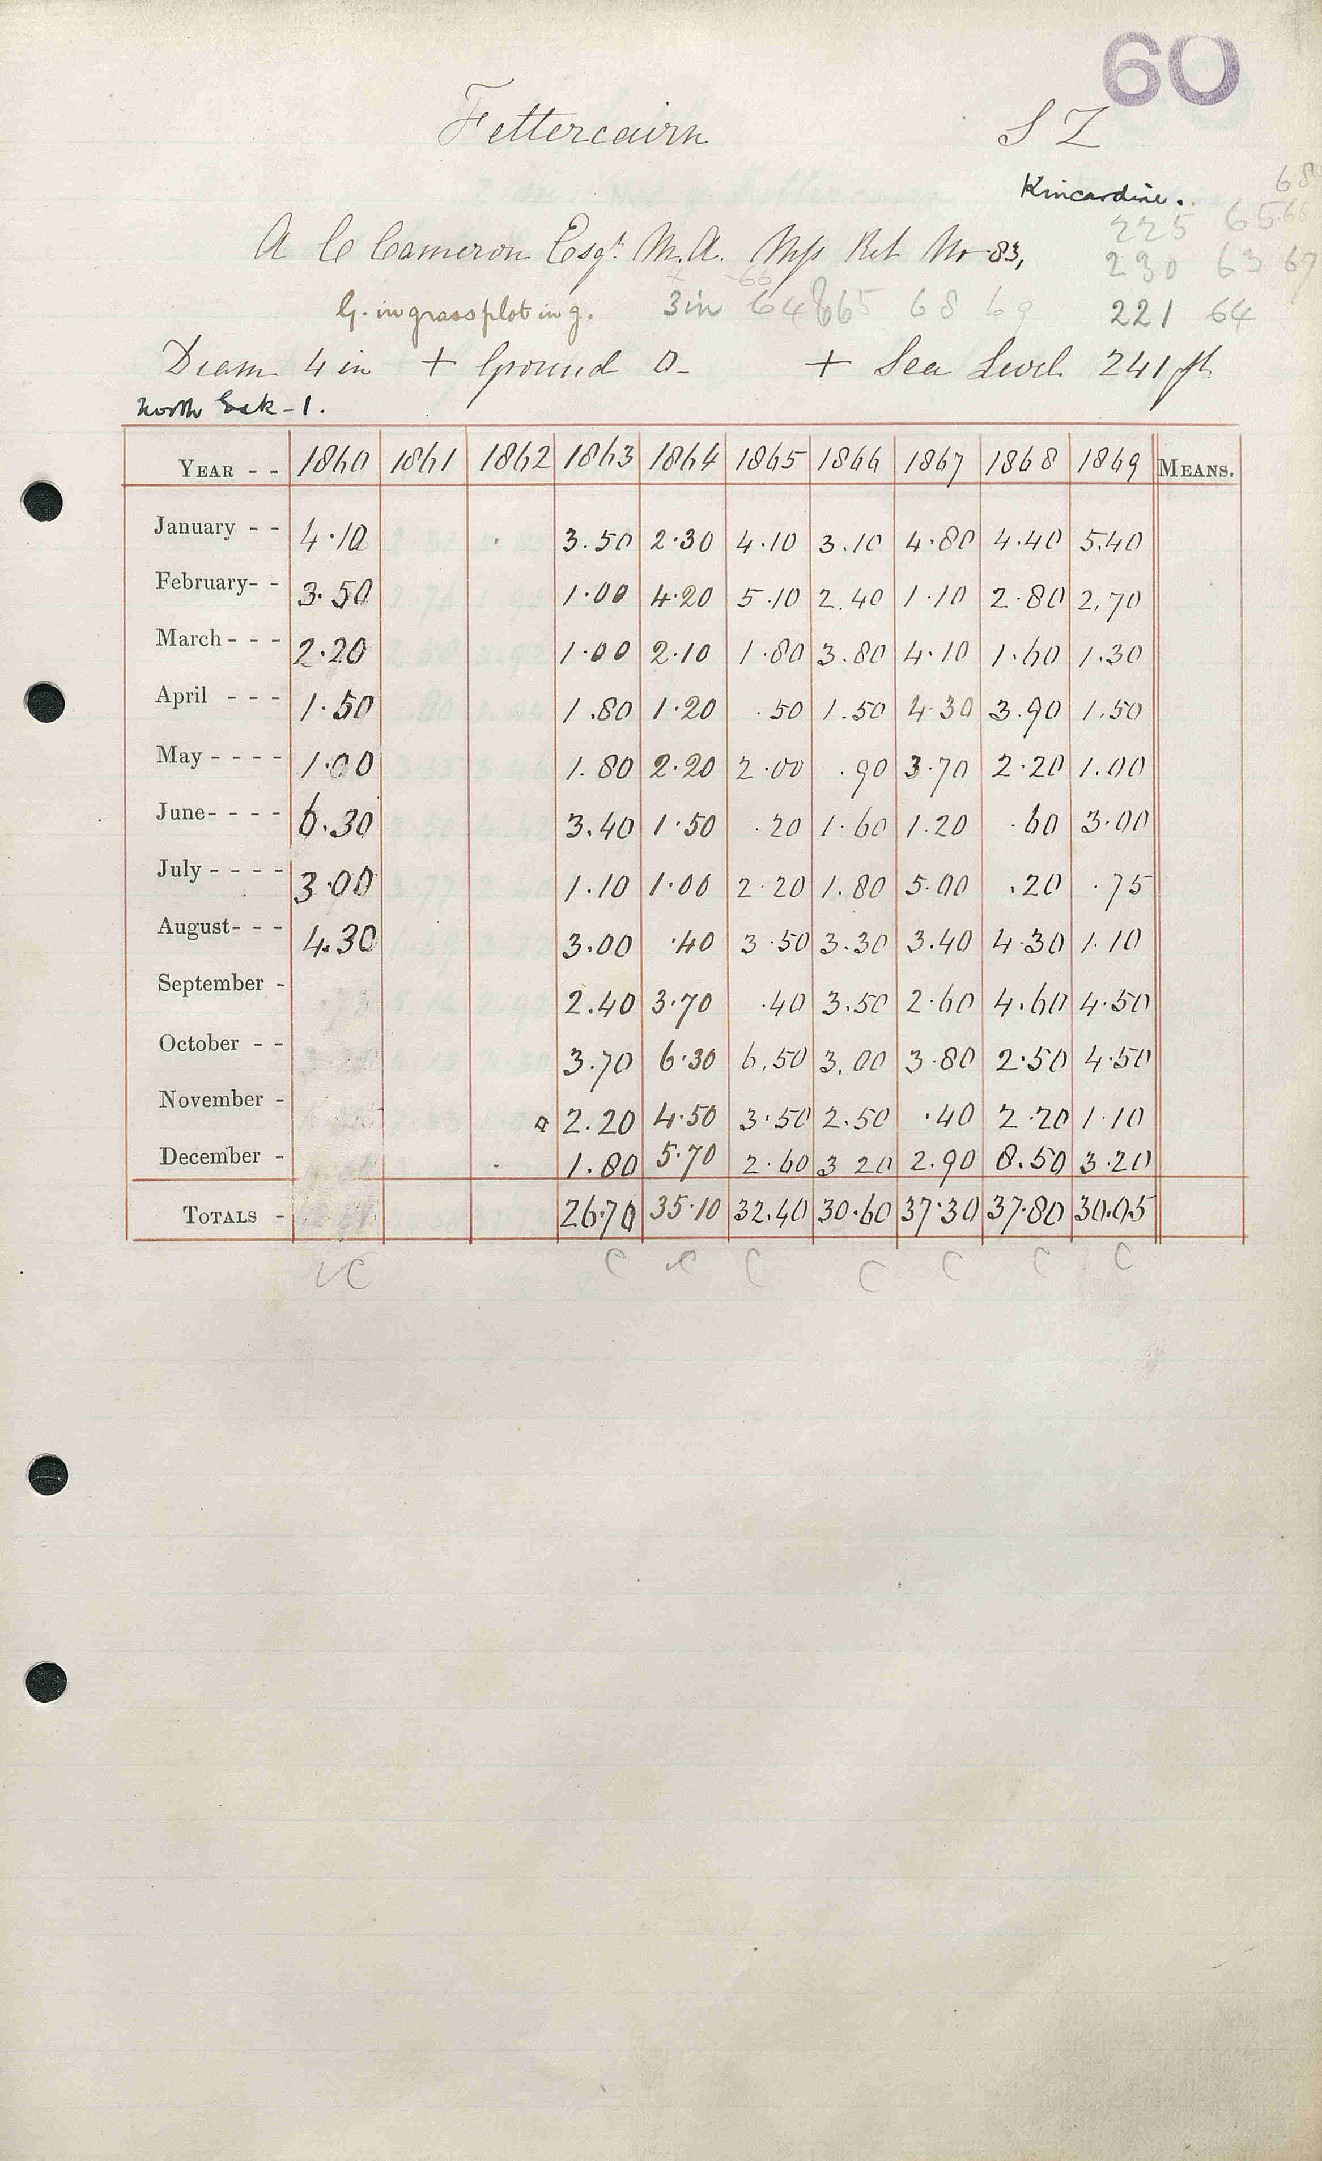 60
Fettercairn S Z
Kincardine. 68
225 65.66
A C Cameron Esqr M.A. Mss Ret No 83,
230 63 67
G. in grass plot in g. 3in 64 65 68 69 221 64
Diam 4 in + Ground 0- + Sea Level 241 ft
North Esk - 1.
YEAR - - 1860 1861 1862 1863 1864 1865 1866 1867 1868 1869 MEANS.
January - - 4.10 3.50 2.30 4.10 3.10 4.80 4.40 5.40
February- - 3.50 1.00 4.20 5.10 2.40 1.10 2.80 2.70
March - - - 2.20 1.00 2.10 1.80 3.80 4.10 1.60 1.30
April - - - 1.50 1.80 1.20 .50 1.50 4.30 3.90 1.50
May - - - - 1.00 1.80 2.20 2.00 .90 3.70 2.20 1.00
June- - - - 6.30 3.40 1.50 .20 1.60 1.20 .60 3.00
July - - - - 3.00 1.10 1.00 2.20 1.80 5.00 .20 .75
August- - - 4.30 3.00 .40 3.50 3.30 3.40 4.30 1.10
September - 2.40 3.70 .40 3.50 2.60 4.60 4.50
October - - 3.70 6.30 6.50 3.00 3.80 2.50 4.50
November - 2.20 4.50 3.50 2.50 .40 2.20 1.10
December - 1.80 5.70 2.60 3 20 2.90 8.50 3.20
TOTALS - 26.70 35.10 32.40 30.60 37.30 37.80 30.05
C C C C C C C C